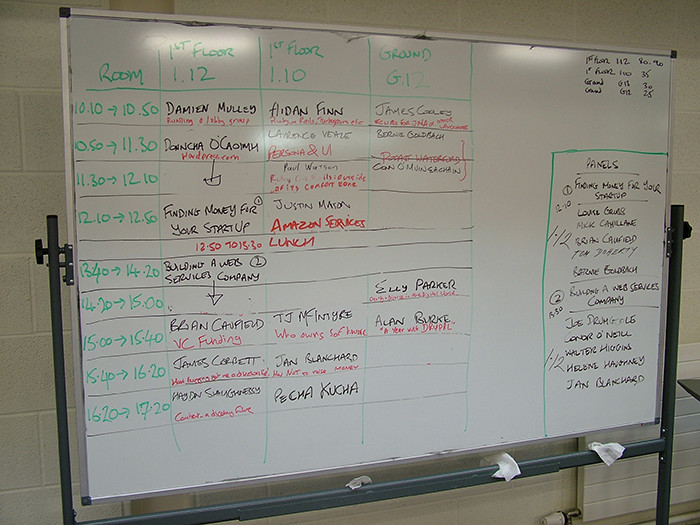 1ST FLOOR 1ST FLOOR GROUND
ROOM 1.12 1.10 G.12
10.10 → 10.50 DAMIEN MULLEY AIDAN FINN JAMES COOLEY
Running a lobby group
10.50 → 11.30 DONNCHA O'CAOIMH LAURENCE VEALE BERNIE GOLDBACH
Wordpress.com PERSONA & UI PODCAST WATERFORD
11.30 → 12.10 Paul Watson CON O'MUINEACHAIN
outside
OF ITS COMFORT ZONE
12.10 → 12.50 FINDING MONEY FOR ① JUSTIN MASON
YOUR STARTUP AMAZON SERVICES
12:50 TO 13.30 LUNCH
13.40 → 14.20 BUILDING A WEB ②
SERVICES COMPANY
14.20 → 15.00 ELLY PARKER
15.00 → 15.40 BRIAN CAULFIELD TJ MCINTYRE ALAN BURKE
VC Funding Who owns software "A Year with DRUPAL"
15.40 → 16.20 JAMES CORBETT JAN BLANCHARD
How NOT to raise MONEY
16.20 → 17.20 HAYDN SHAUGHNESSY PECHA KUCHA
1ST FLOOR 112 80-90
1ST FLOOR 110 35
Ground G13 30
Ground G12 25
PANELS
① FINDING MONEY FOR YOUR
12.10 STARTUP
MICK CAHILLANE
1.12 BRIAN CAULFIELD
TOM DOHERTY
BERNIE GOLDBACH
② BUILDING A WEB SERVICES
COMPANY
JOE DRUMGOOLE
CONOR O'NEILL
WALTER HIGGINS
1.12 HELENE HAUGHNEY
JAN BLANCHARD